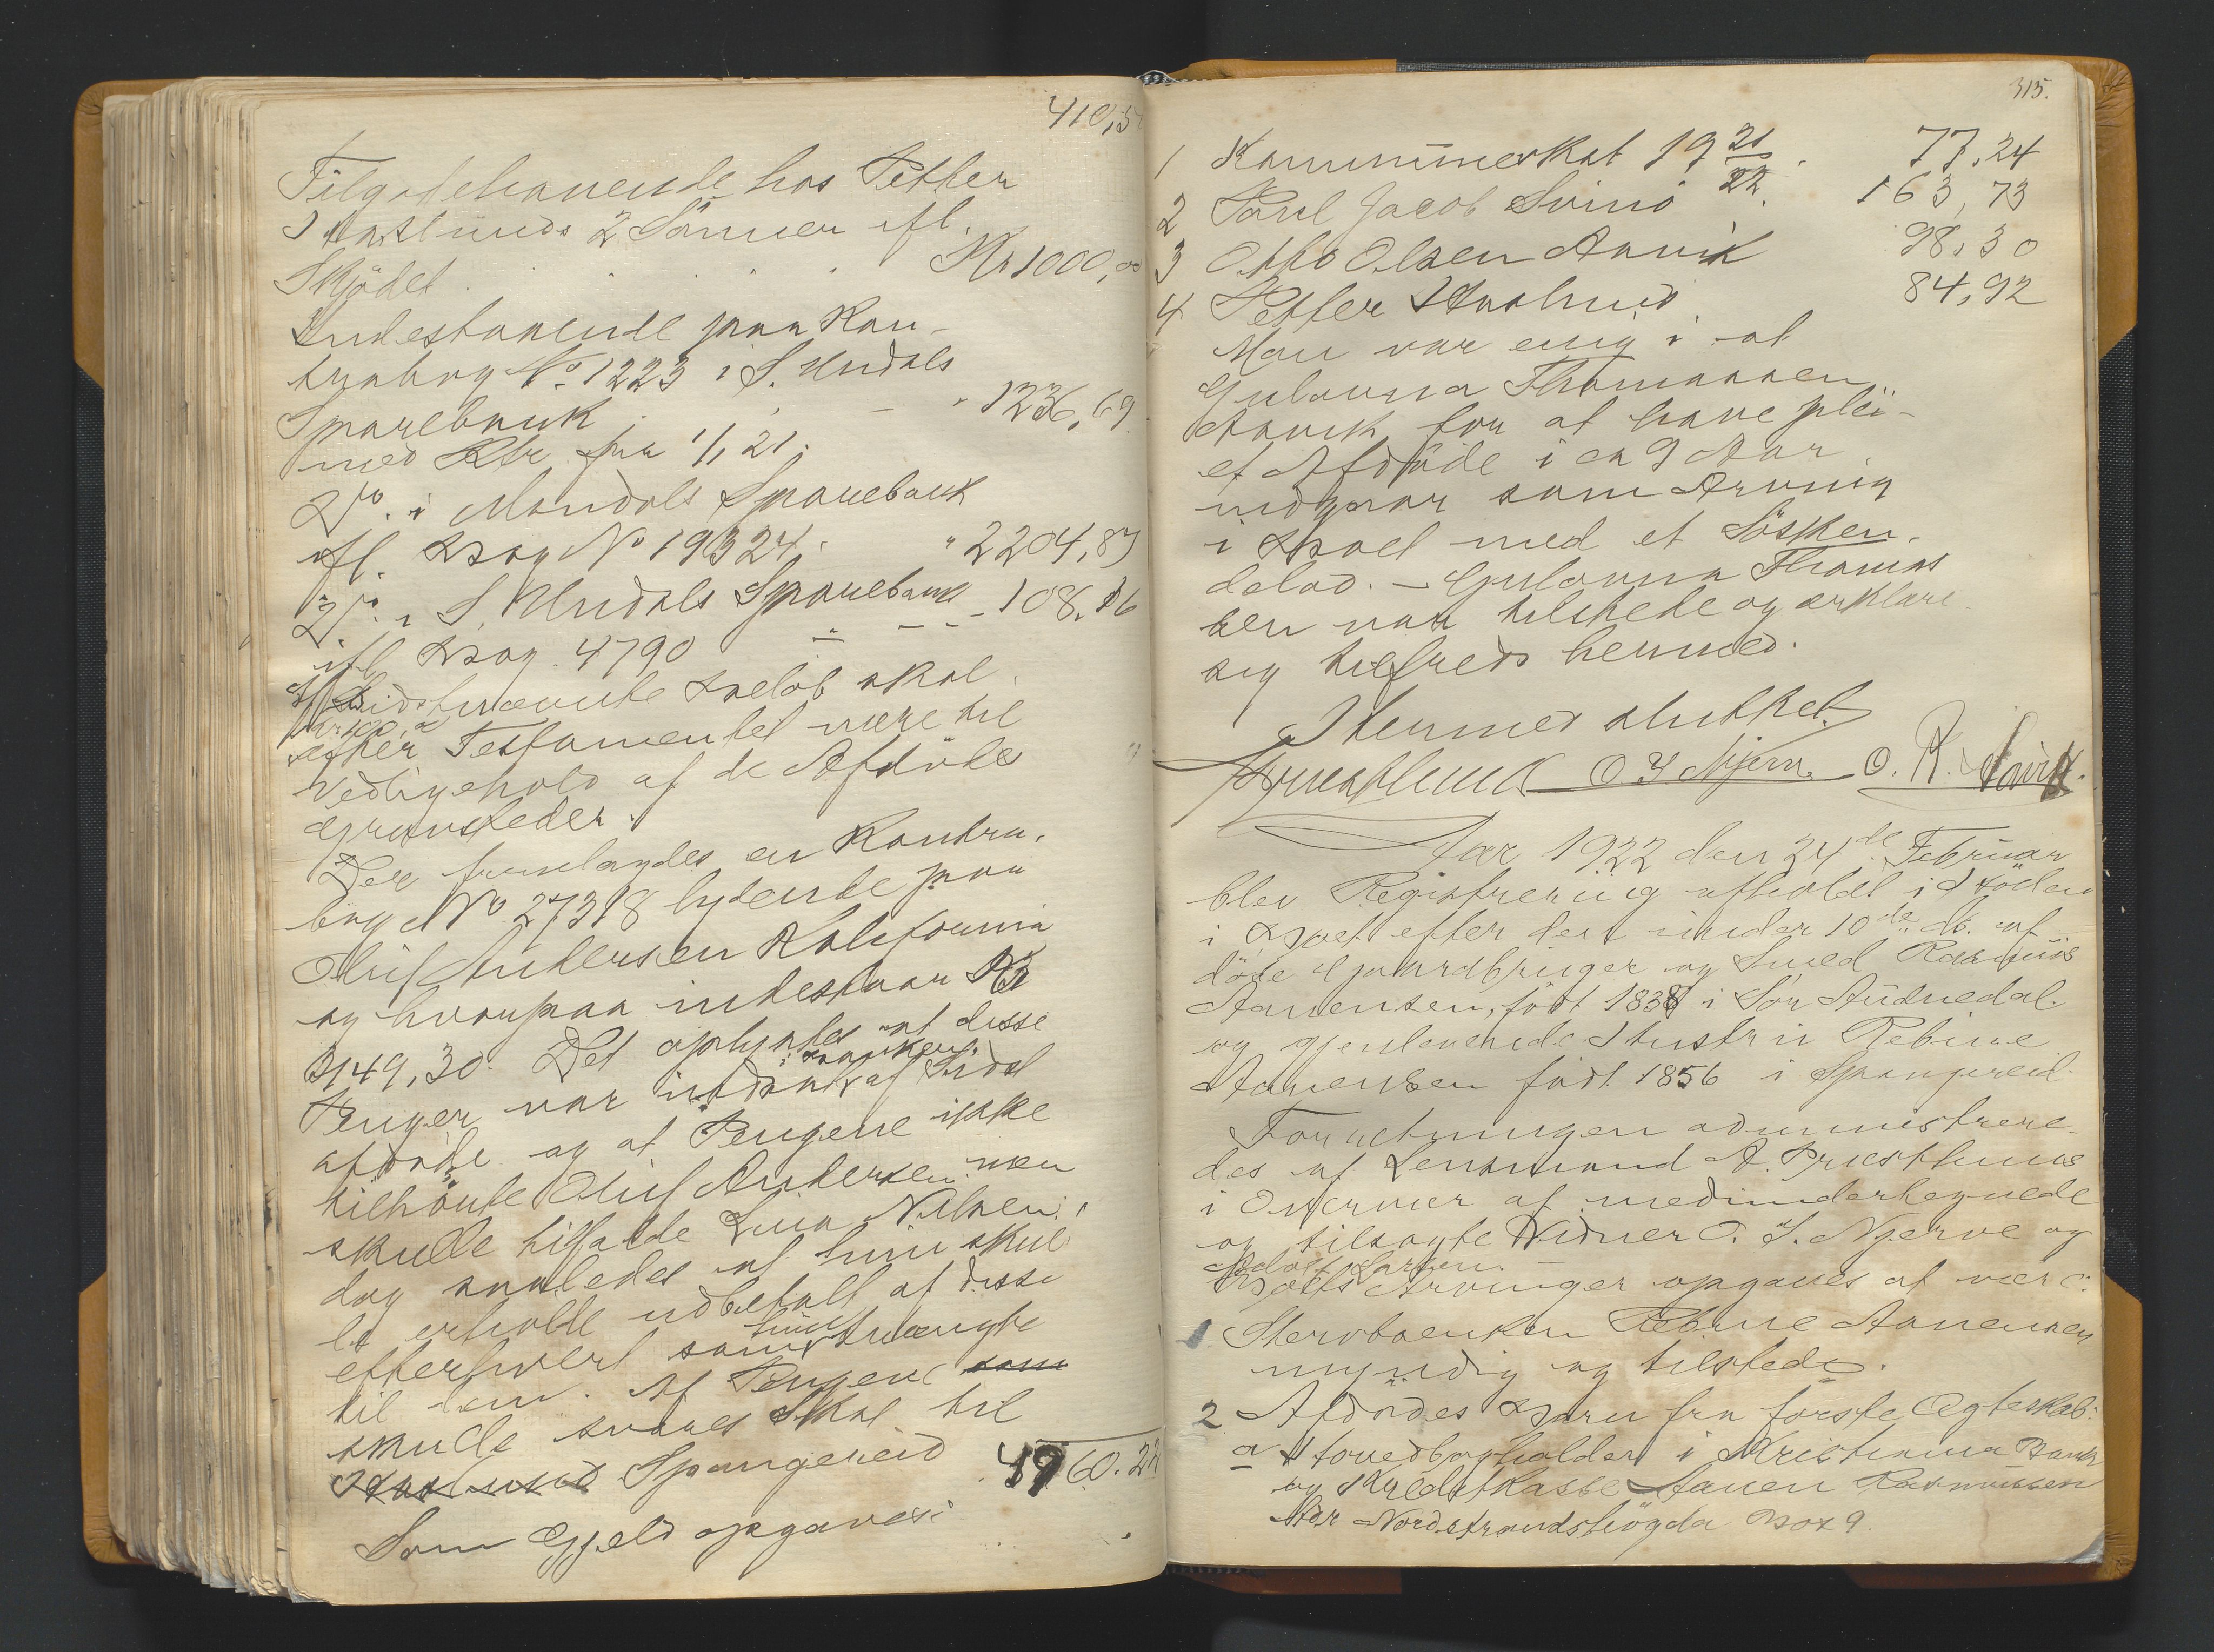 410,5
Tilgodehavende hos Petter
Haslunds 2 Sönner ifl.
Skjödet . . . . Kr 1000,00
Indestaaende paa Kon-
trabog No. 1223 i S. Undals
Sparebank . . - " 1236,69
med Rtr. fra 1/1 21.
Do. i Mandals Sparebank
ifl. Bog No 19324. " 2204,87
Do. i S. Undals Sparebank - 108.16
ifl. Bog 4790 - - -
Af Sidstnævnte Beløb skal
Kr. 100,00
efter Testamentet være til
Vedligehold af de Afdödes
gravsteder.
Der fremlagdes en Kontra-
bog No 27318 lydende paa
Oluf Andersen Kalifornia
og hvorpaa indestaar Kr
3149,30. Det oplystes at disse
i banken
Penger var indsat af
afdøde og at Pengene ikke
tilhörte Oluf Andersen men
skulde tilfalde Lina Nilsen,
dog saaledes at hun skul
le erholde udbetalt af disse
hun
efterhvert som trængte
til dem. Af Pengene som
skulde svares Skat til
Haslund Spangereid
4960.22
Som Gjeld opgaves:
315.
1 Kommuneskat 19 21/22 . 77,24
2 Paul Jacob Svinö . 163,73
3 Otto Olsen Aavik 98,30
4 Petter Haslund 84,92
Man var enig i at
Gulovna Thomassen
Aavik for at have plei-
et Afdöde i ca 9 Aar
indgaar som Arving
i Boet med et Sösken-
delod. - Gulovna Thomas
sen var tilstede og erklære
sig tilfreds hermed.
Hermed sluttet.
A. Presthuus O J Njerve O. R. Aavik.
Aar 1922 den 24de Februar
blev Registrering afholdt i Stöden
i Boet efter den under 10de ds. af
döde Gaardbruger og Smed Rasmus
Aanensen, födt 1838 i Sör Audnedal.
og gjenlevende Hustru Rebine
Aanensen födt 1856 i Spangereid.
Forretningen administrere-
des af Lensmand A. Presthuus
i Overvær af medundertegnede
og tilsagte Vidner O. J. Njerve og
Larsen.
Boets Arvinger opgaves at være:
1 Stervboenken Rebine Aanensen
myndig og tilstede.
2 Afdødes Børn fra förste Ægteskab:
a Hovedbogholder i Kristiania Bank
og Kreditkasse Aanen Rasmussen
Adr Nordstrandshögda Box 9.